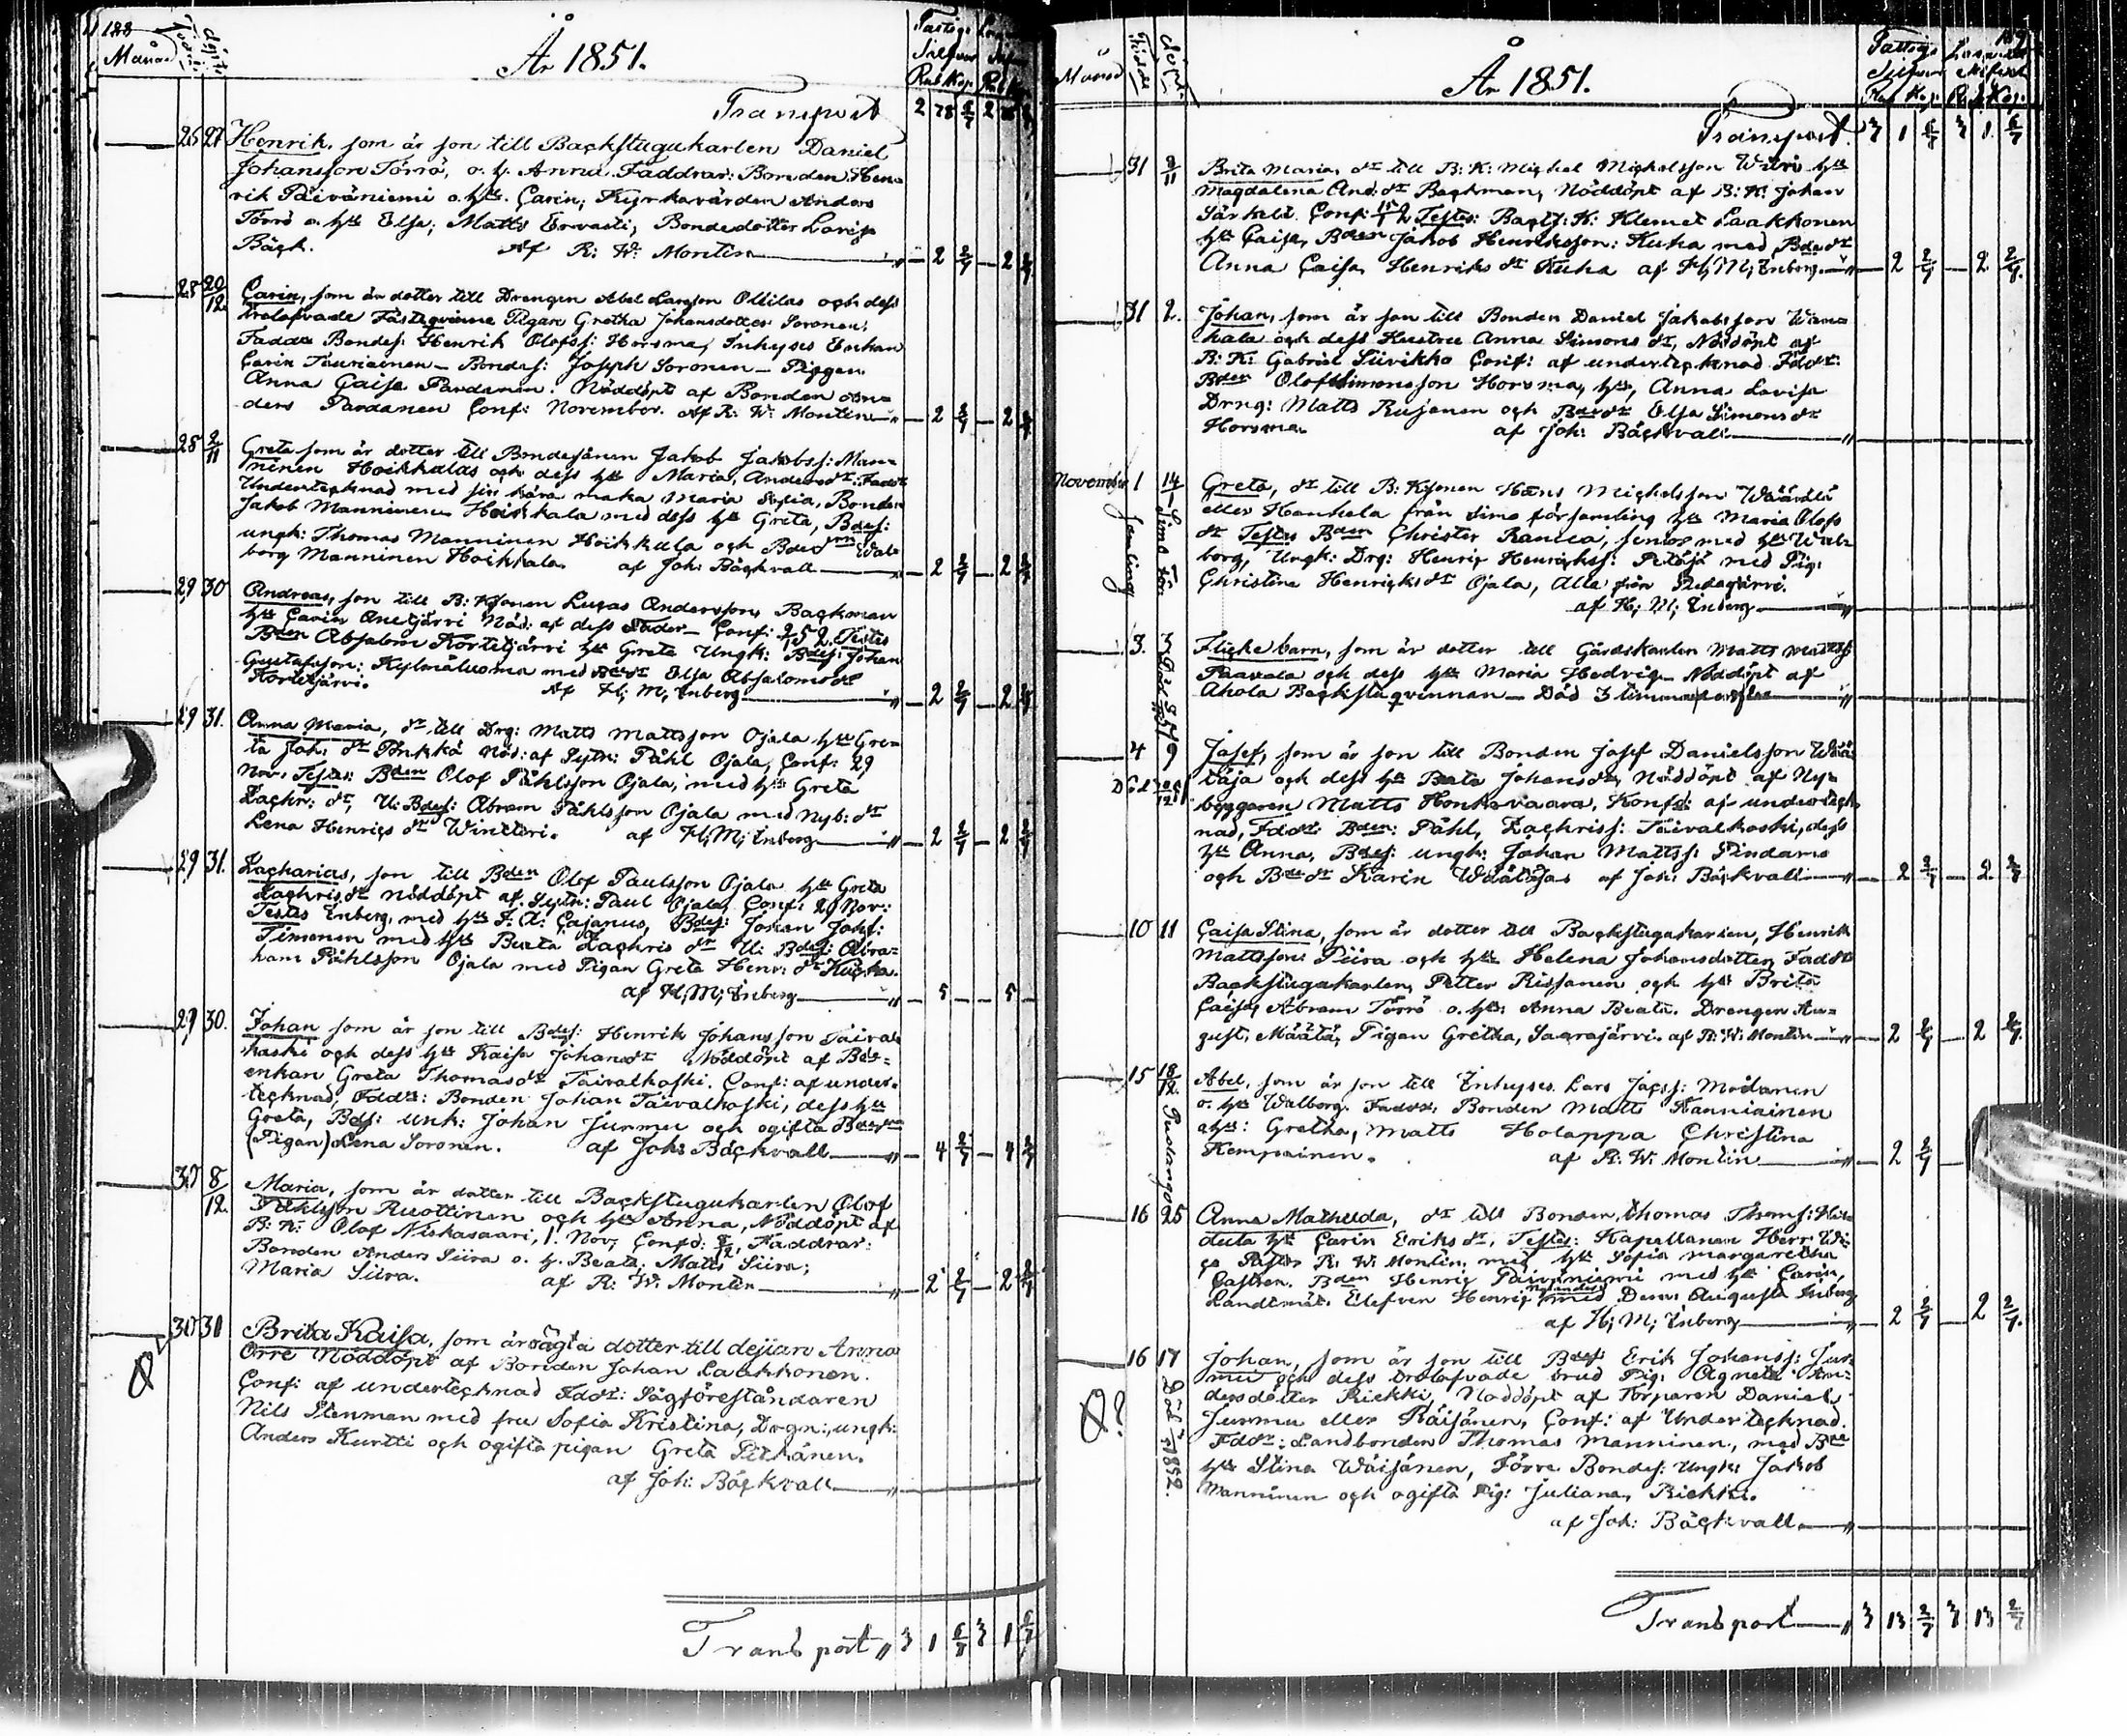 188
Månad Födde döpte
År 1851.
Fattigs Silfver Rub. Kop.
Transport 2 78 6/7 2
25 27 Henrik, som är son till Backstugukarlen Daniel
Johansson Törrö, o. h. Anna. Faddrar: Bonden Hen-
rik Päiväniemi o. hu. Carin, Kyrkovärden Anders
Törrö o. hu Elsa; Matts Ervasti, Bondedotter Lovisa
Bäck. Af R: W: Montin " - 2 2/7 - 2 2/7
28 20/12 Carin, som är dotter till Drengen Abel Larsson Ollilas och dess
trolofvade Fästeqvinna Pigan Gretha Johansdotter Soronen.
Fadd: Bondes: Henrik Olofss: Horsma, Inhyses Enkan
Carin Tauriainen - Bondes: Joseph Soronen - Piggen
Anna Caisa Pardanen. Nöddöpt af Bonden An-
ders Pardanen Conf: November. Af R: W: Montin " - 2 2/7 - 2 2/7
28 2/11 Greta som är dotter till Bondesonen Jakob Jakobss: Man-
ninen Hoikkalas och dess hu Maria, Andersdr: Fadd:
Undertecknad med sin kära maka Maria Sofia, Bonden
Jakob Manninen Hoikkala med dess hu Greta, Bdes:
ungk: Thomas Manninen Hoikkala och Bde Wal-
borg Manninen Hoikkala. af Joh: Bäckvall - 2 2/7 - 2 2/7
29 30 Andreas, son till B: Kjonen Lucas Andersson Backman
hu Carin Anetjärvi Nöd: af dess Fader - Conf: 2/5 2. Testes
Bden Absalom Kortetjärvi hu Greta Ungk: Bdes: Johan
Gustafsson: Kylmäluoma med Bde dr Elsa Absalomsdr
Kortetjärvi. Af H; M; Enberg " 2 2/7 - 2 2/7
29 31. Anna Maria, dr till Drg: Matts Mattsson Ojala hu Gre-
ta Joh: dr Pirkkä Nöd: af Sytn: Påhl Ojala, Conf: 29
Nov: Testes: Bden Olof Påhlsson Ojala, med hu Greta
Zachr: dr, U: Bdes: Abram Påhlsson Ojala med Nyb: dr
Lena Henrics dr Winttari. af H; M; Enberg " - 2 2/7 - 2 2/7
29 31. Zacharias, son till Bden Olof Paulsson Ojala hu Greta
Zachris dr nöddöpt af Sytn: Paul Ojala, Conf: 29 Nov:
Testes Enberg, med hu F. A: Cajanus, Bdes: Johan Johs:
Timonen med hu Beata Zachris dr U: Bdes: Abra-
ham Påhlsson Ojala med Pigan Greta Henr: dr Kucha.
af H; M; Enberg " - 5 - - 5 -
29 30. Johan som är son till Bdes: Henrik Johansson Taival-
koski och dess hu Kaisa Johansdr Nöddöpt af Bde-
enkan Greta Thomasdr Taivalkoski. Conf: af under-
tecknad, Fddr: Bonden Johan Taivalkoski, dess hu
Greta, Bds: unk: Johan Jurmu och ogifta Bde
(Pigan) Lena Soronen. af Joh: Bäckvall " - 4 2/7 - 4 2/7
30 8/12. Maria, som är dotter till Backstugukarlen Olof
Påhlsson Ruottinen och hu Anna, Nöddöpt af
B: K: Olof Niskasaari, 1. Nov, Confd: 8/12, Faddrar:
Bonden Anders Siira o. h. Beata; Matts Siira;
Maria Siira. af R: W: Montin " - 2 2/7 - 2 2/7
30 31 Brita Kaisa, som är oägta dotter till dejian Anna
Orre Nöddöpt af Bonden Johan Laakkonen.
Conf: af undertecknad Fddr: Sågföreståndaren
Nils Stenman med fru Sofia Kristina, Drgn: ungk:
Anders Kurtti och ogifta pigan Greta Pitkänen.
af Joh: Bäckvall "
Transport " 3 1 6/7 3 1 6/7
189
Månad Födde döpte
År 1851.
Fattigs Silfver Rub. Kop.
Transport. 3 1 6/7 3 1 6/7
31 2/11 Brita Maria, dr till B: K: Michel Michelsson Witri hu
Magdalena And: dr Backman, Nöddöpt af B: K: Johan
Särkelä. Conf: 15/1 2 Testes: Backst: K: Klemet Laakkonen
hu Caisa, Bden Jakob Henriksson: Kuha med Bde dr
Anna Caisa Henriks dr Kuha af H; M; Enberg " - 2 2/7 - 2 2/7.
31 2. Johan, som är son till Bonden Daniel Jakobsson Wän-
kala och dess Hustru Anna Simons dr, Nöddöpt af
B: K: Gabriel Siivikko Conf: af undertecknad Fddr:
Bden Olof Simonsson Horsma, hu, Anna Lovisa
Drng: Matts Rusanen och Bde dr Elsa Simons dr
Horsma. af Joh: Bäckvall "
November 1 14 Greta, dr till B: Kjonen Hans Michelsson Wäärälä
eller Hankela från Simo församling hu Maria Olofs
dr Testes Bden Christer Rantta, senior med hu Wal-
borg, Ungk: Drg: Henric Henrickss: Petäjä med Pig:
Christina Henricks dr Ojala, Alla från Pudasjärvi.
af H; M; Enberg "
Simo församling
3. 3 Flickebarn, som är dotter till Gårdskarlen Matts Mattss
Paavola och dess hu Maria Hedvig. Nöddöpt af
Ahola Backstuqvinnan - Död 3 timmar
4 9 Josef, som är son till Bonden Josef Danielsson Wää-
täjä och dess hu Beata Johansdr, Nöddöpt af Ny-
byggaren Matts Honkavaara, Konfd: af underteck-
nad, Fddr: Bden: Påhl, Zachriss: Taivalkoski, dess
hu Anna, Bdes: ungk: Johan Mattss: Pindamo
och Bde dr Karin Wäätäjäs af Joh: Bäckvall " - 2 2/7 - 2 2/7
10 11 Caisa Stina, som är dotter till Backstugukarlen, Henrik
Mattsson Piira och hu Helena Johansdotter, Fadd:
Backstugukarlen, Petter Rissanen och hu Brita
Caisa, Abram Törrö o. hu: Anna Beata. Drengen Au-
gust, Määttä, Pigan Gretha, Saarajärvi. af R: W: Montin " - 2 2/7 - 2 2/7.
15 18/12. Abel, som är son till Inhyses Lars Jacss: Mådanen
o. hu Walborg. Faddr, Bonden Matts Kanniainen
o hu: Gretha, Matts Holappa Christina
Kempainen. af R: W: Montin " - 2 2/7 -
16 25 Anna Mathilda, dr till Bonden, Thomas Thoms: Hil-
tula hu Carin Eriks dr, Testes: Kapellanen Herr Vi-
ce Pastor R. W. Montin, med hu Sofia Margaretha
Castren. Bden Henric Päiväniemi med hu Carin,
Landtmät: Elefven Henric Nylander med Dem: Augusta Enberg
af H; M; Enberg " - 2 2/7 - 2 2/7.
16 17 Johan, som är son till Bdes: Erik Johanss: Jur-
mu och dess trolofvade brud Pig: Agneta An-
dersdotter Riekki, Nöddöpt af Torparen Daniel
Jurmu eller Räisänen, Conf: af Undertecknad.
Fddr: Landbonden Thomas Manninen, med Bde
hu Stina Wäisänen, Förre Bondes: Ungk: Jakob
Manninen och ogifta Pig: Juliana, Riekki.
af Joh: Bäckvall "
Transport " 3 13 2/7 3 13 2/7